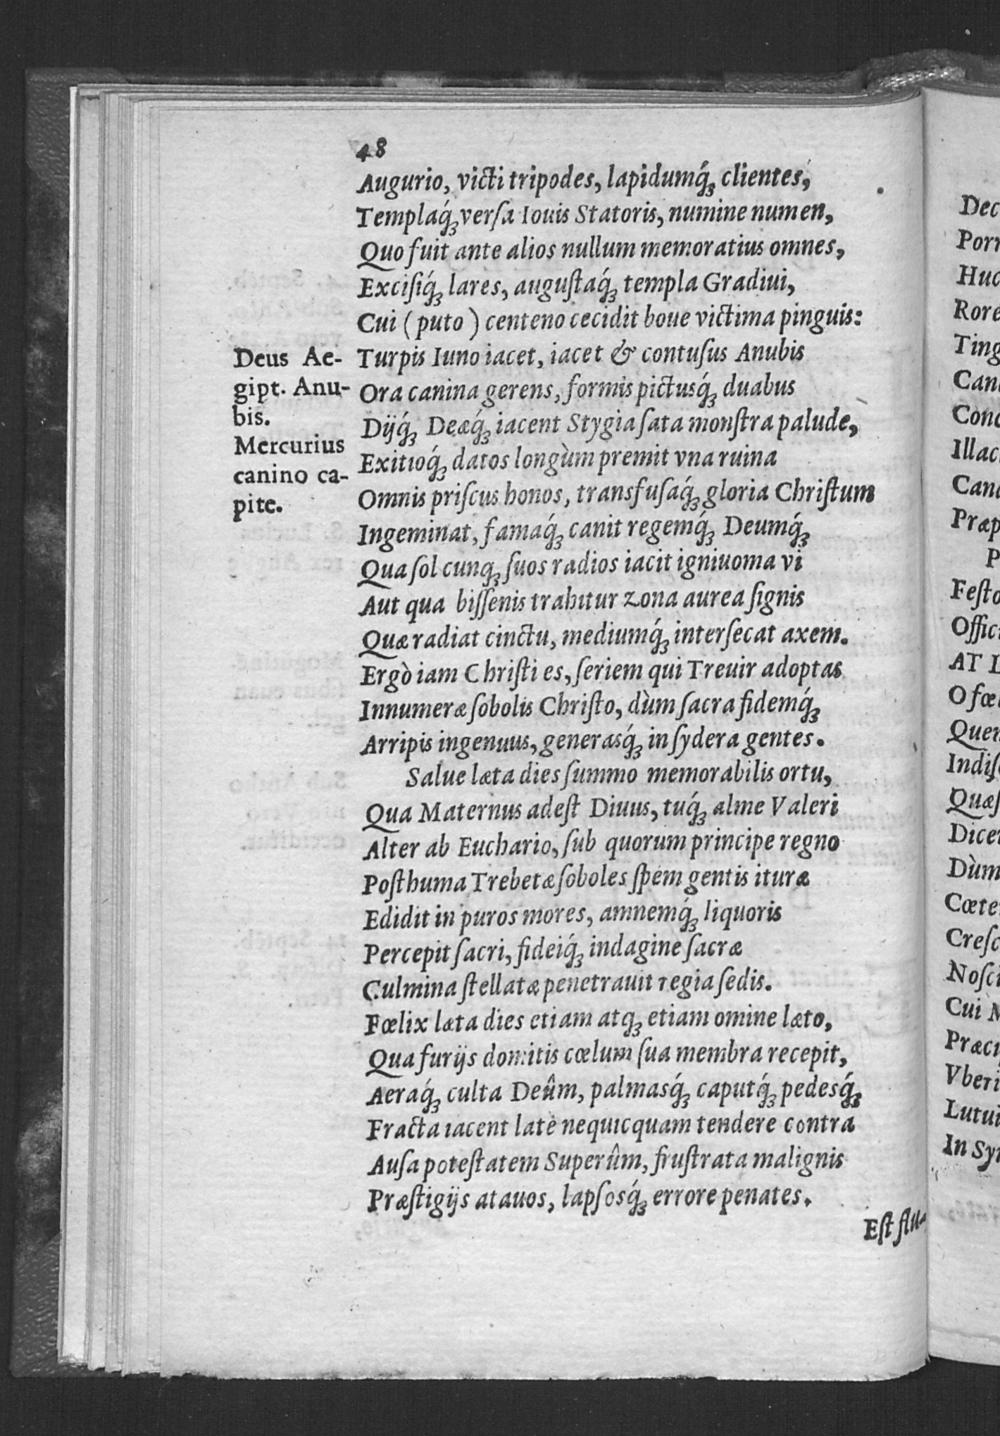 48
Augurio, victi tripodes, lapidumq́ꝫ clientes,
Templaq́ꝫ versa Iouis Statoris, numine numen,
Quo fuit ante alios nullum memoratius omnes,
Excisiq́ꝫ lares, augustaq́ꝫ templa Gradiui,
Cui (puto) centeno cecidit boue victima pinguis:
Turpis Iuno iacet, iacet & contusus Anubis
Ora canina gerens, formis pictusq́ꝫ duabus
Dijq́ꝫ Deæq́ꝫ iacent Stygia sata monstra palude,
Exitioq́ꝫ datos longùm premit vna ruina
Omnis priscus honos, transfusaq́ꝫ gloria Christum
Ingeminat, famaq́ꝫ canit regemq́ꝫ Deumq́ꝫ
Qua sol cunqꝫ suos radios iacit igniuoma vi
Aut qua bissenis trahitur zona aurea signis
Quæ radiat cinctu, mediumq́ꝫ intersecat axem.
Ergò iam Christi es, seriem qui Treuir adoptas
Innumeræ sobolis Christo, dùm sacra fidemq́ꝫ
Arripis ingenuus, generasq́ꝫ in sydera gentes.
Salue læta dies summo memorabilis ortu,
Qua Maternus adest Diuus, tuq́ꝫ alme Valeri
Alter ab Euchario, sub quorum principe regno
Posthuma Trebetæ soboles spem gentis ituræ
Edidit in puros mores, amnemq́ꝫ liquoris
Percepit sacri, fideiq́ꝫ indagine sacræ
Culmina stellatæ penetrauit regia sedis.
Fœlix læta dies etiam atqꝫ etiam omine læto,
Qua furijs domitis cœlum sua membra recepit,
Aeraq́ꝫ culta Deûm, palmasq́ꝫ caputq́ꝫ pedesq́ꝫ
Fracta iacent latè nequicquam tendere contra
Ausa potestatem Superûm, frustrata malignis
Præstigijs atauos, lapsosq́ꝫ errore penates.
Est
Deus Ae-
gipt. Anu-
bis.
Mercurius
canino ca-
pite.
Dec
Porr
Huc
Rore
Ting
Can
Conc
Illac
Cand
Præp
P
Festo
Offici
AT I
O fœl
Quer
Indis
Quæs
Dicer
Dùm
Cœte
Cresc
Nosci
Cui M
Præci
Vberi
Lutui
In Syr